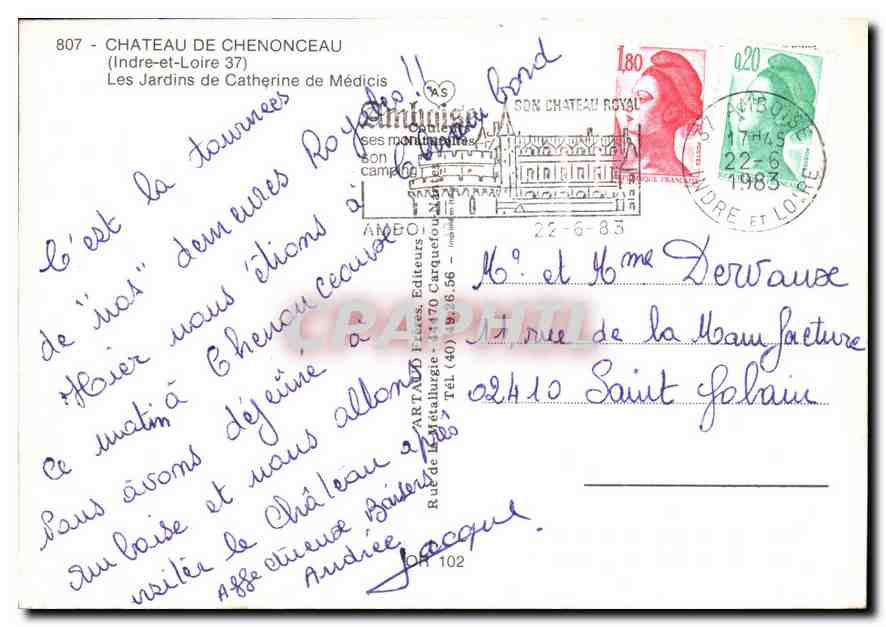 807 - CHATEAU DE CHENONCEAU
(Indre-et-Loire 37)
Les Jardins de Catherine de Médicis
C'est la tournées
de "nos" demeures Royales !!
Hier nous étions à Chambord
Ce matin à Chenonceaux
Nous avons déjeuné à
Amboise et nous allons
visiter le Château après
Affectueux Baisers
Andrée
Jacque
AS
Amboise
ses monuments
son
camping
SON CHATEAU ROYAL
AMBOISE
22-6-83
1,80
0,20
REPUBLIQUE FRANÇAISE
37 AMBOISE
17H45
22-6
1983
INDRE ET LOIRE
ARTAUD Frères, Editeurs
Rue de la Métallurgie - 44470 Carquefou-Nantes
Tél (40) 49.26.56 - Imprimé en
Mr. et Mme Dervaux
11, rue de la Manufacture
02410 Saint Gobain
OR 102
CPAPHIL